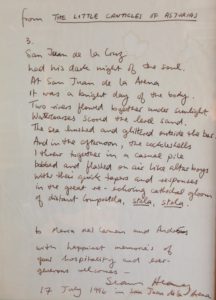 from THE LITTLE CANTICLES OF ASTURIAS
3.
San Juan de la Cruz
had his dark night of the soul.
At San Juan de la Arena
It was a bright day of the body.
Two rivers flowed together under sunlight.
Watercourses scored the level sand.
The sea hushed and glittered outside the bar.
And in the afternoon, the cockleshells
I threw together in a casual pile
bobbed and flashed on air like altar boys
with their quick tapers and responses
in the great re-echoing cathedral gloom
of distant Compostela, stela, stela.
to María del Carmen and
with happiest memories of
your hospitality and ever-
generous welcomes —
Seamus Heaney
17 July 1996 in San Juan de la Arena